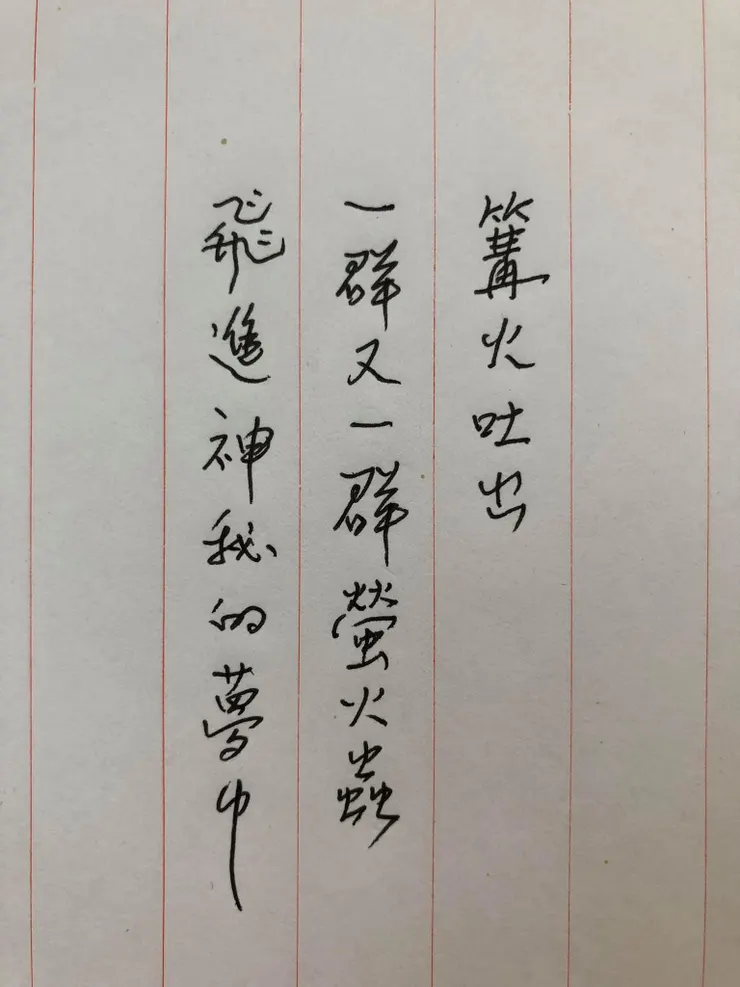 篝火吐出
一群又一群螢火蟲
飛進神秘的夢中